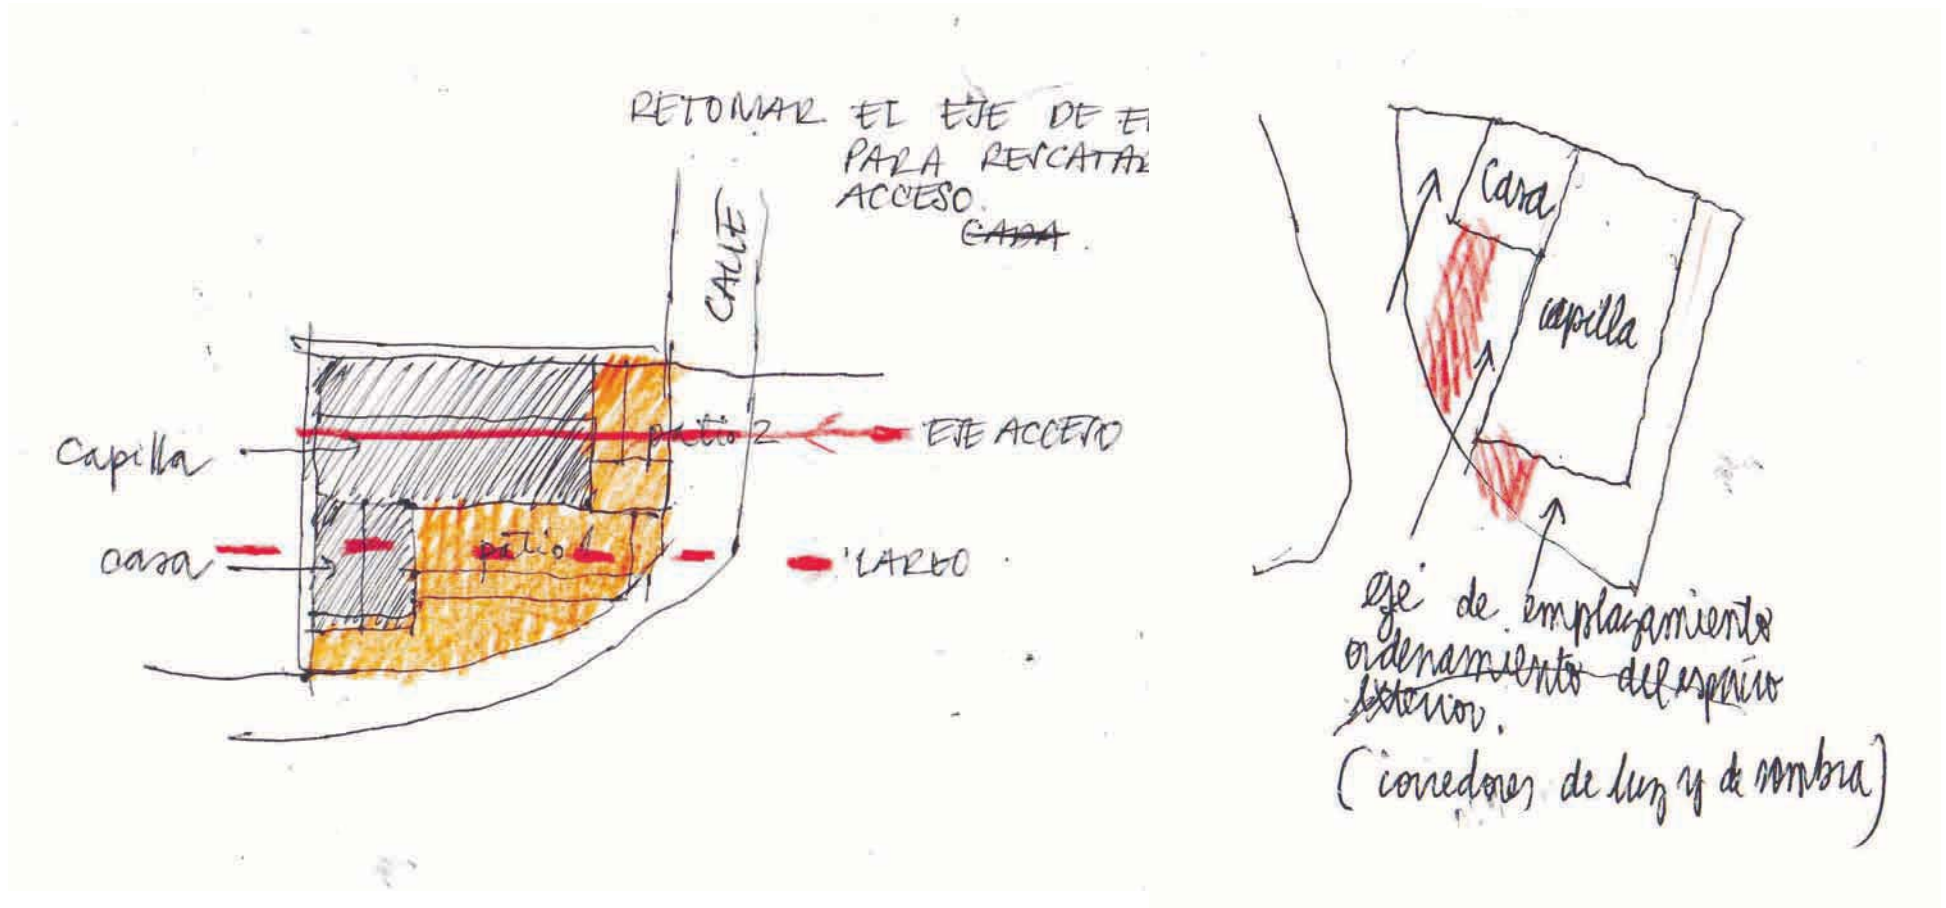 RETOMAR EL EJE DE E
PARA RESCATAR
ACCESO.
CADA.
CALLE
patio 2
EJE ACCESO
Capilla
patio 1
casa
LARGO
Casa
capilla
eje de emplazamiento
ordenamiento del espacio
exterior.
(corredores de luz y de sombra)